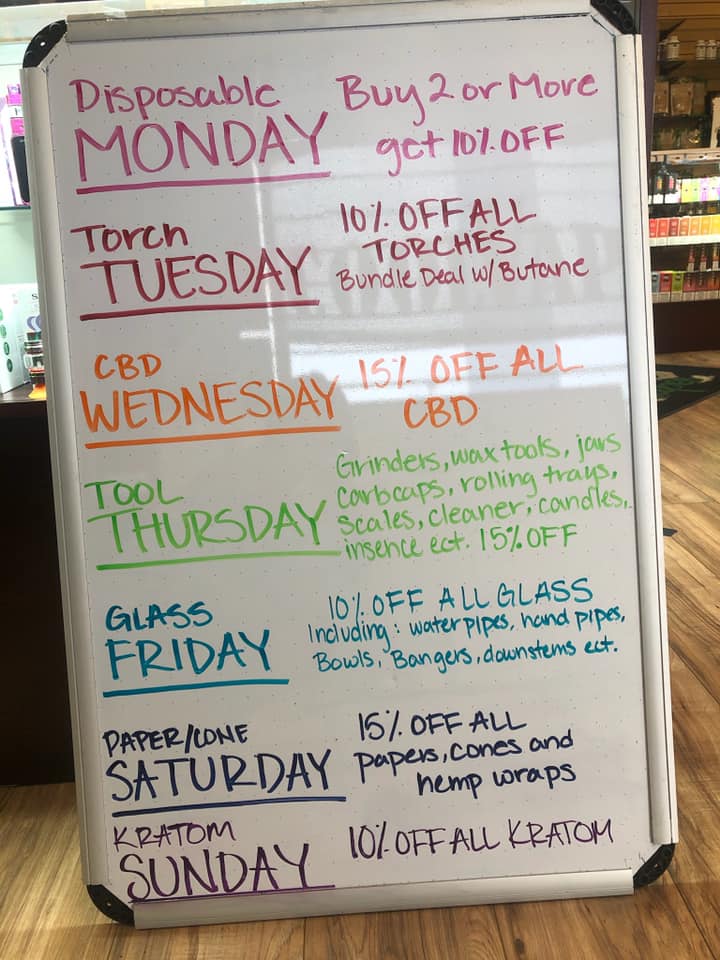 Disposable
MONDAY
Buy 2 or More
get 10% OFF
Torch
TUESDAY
10% OFF ALL
TORCHES
Bundle Deal w/ Butane
CBD
WEDNESDAY
15% OFF ALL
CBD
TOOL
THURSDAY
Grinders, wax tools, jars
Carbcaps, rolling trays,
Scales, cleaner, candles,
insence ect. 15% OFF
GLASS
FRIDAY
10% OFF ALL GLASS
Including: water pipes, hand pipes,
Bowls, Bangers, downstems ect.
PAPER/CONE
SATURDAY
15% OFF ALL
papers, cones and
hemp wraps
KRATOM
SUNDAY
10% OFF ALL KRATOM